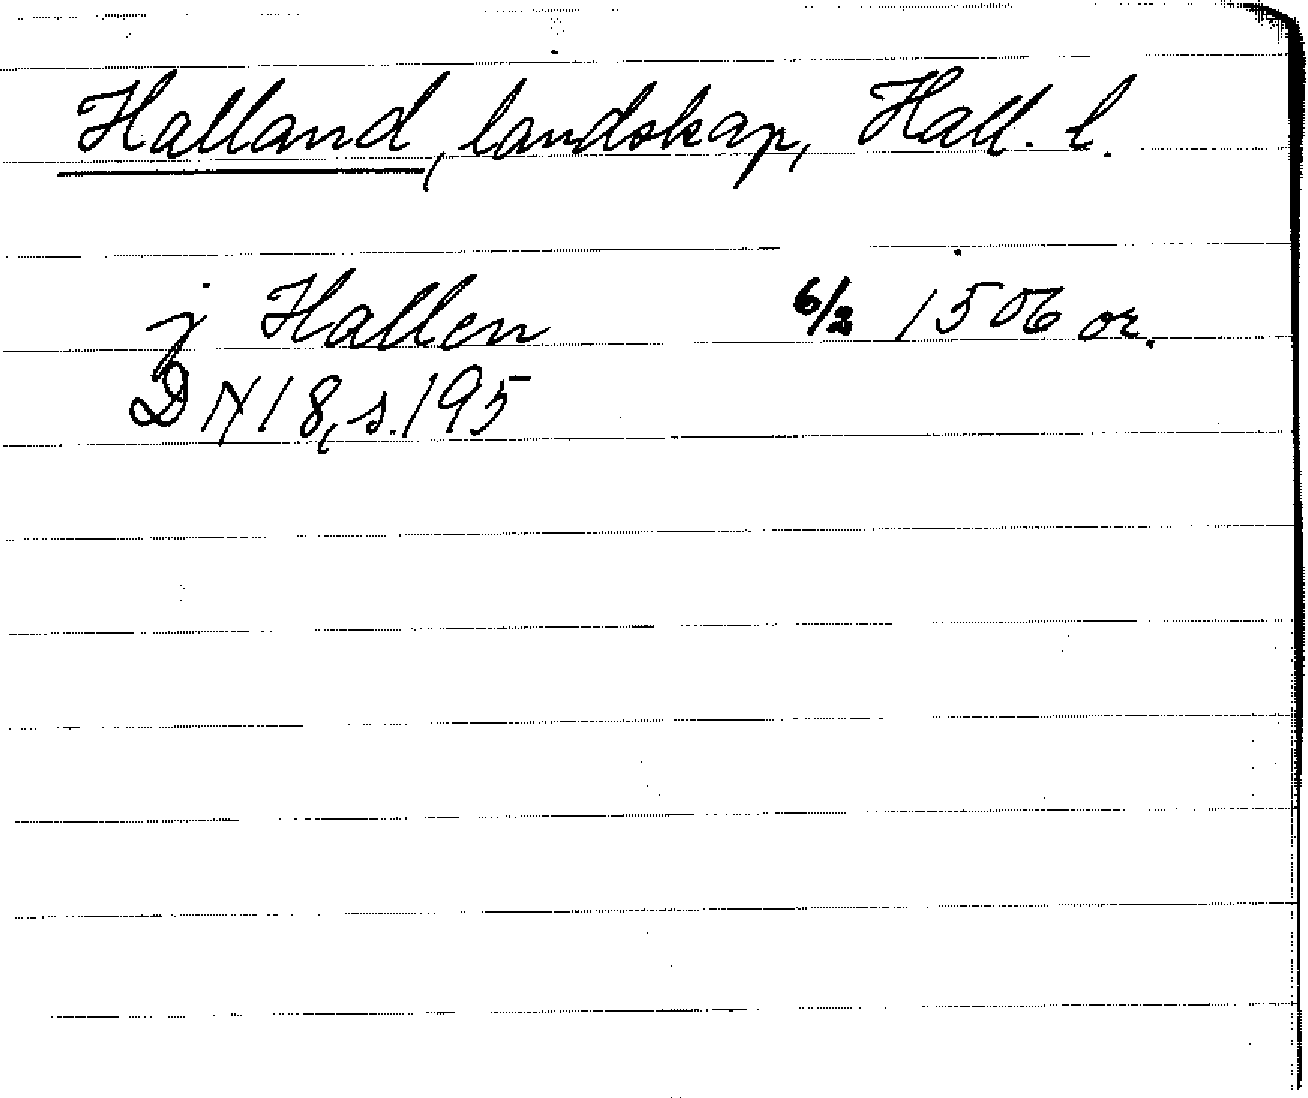 Halland, landskap, Hall. l.
j Hallen 6/2 1506 or.
DN 18, s. 195